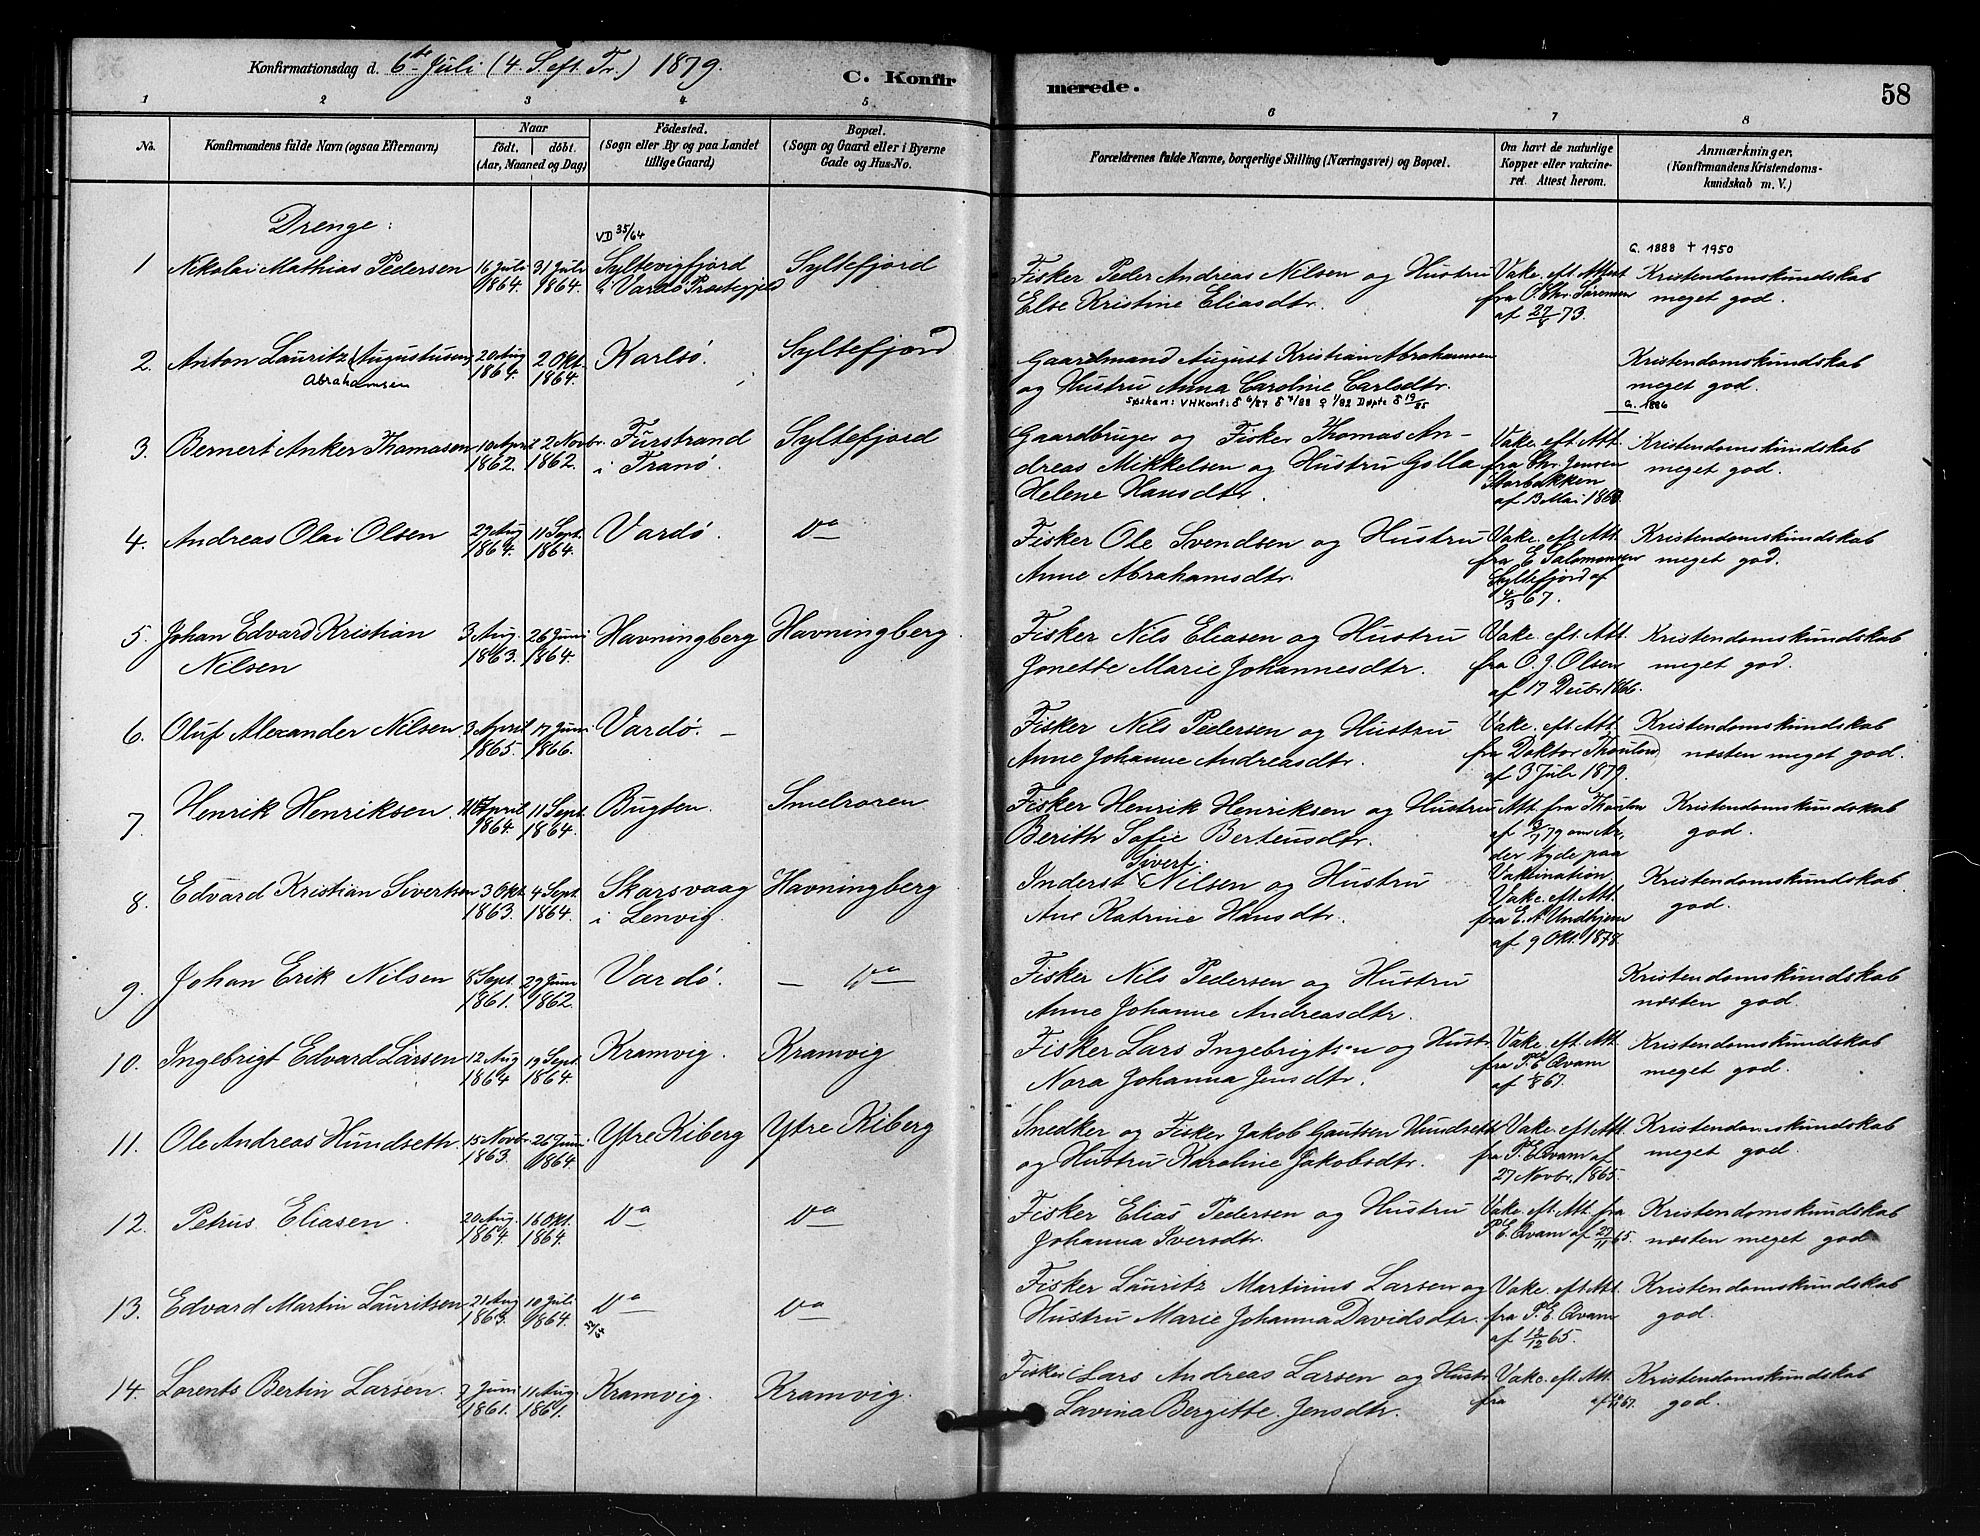 Konfirmationsdag d. 6te Juli (4. S. eft. Tr.) 1879.
C. Konfirmerede.
58
1 2 3 4 5 6 7 8
No.
Konfirmandens fulde Navn (ogsaa Efternavn)
Naar
födt. döbt.
(Aar, Maaned og Dag)
Födested.
(Sogn eller By og paa Landet
tillige Gaard)
Bopæl.
(Sogn og Gaard eller i Byerne
Gade og Hus-No.
Forældrenes fulde Navne, borgerlige Stilling (Næringsvei) og Bopæl.
Om havt de naturlige
Kopper eller vakcine-
ret. Attest herom.
Anmærkninger.
(Konfirmandens Kristendoms-
kundskab m. V.)
Drenge:
VD 35/64
G. 1888 † 1950
1 Nikolai Mathias Pedersen 16 Juli 1864. 31 Juli 1864. Syltevigfjord i Vardö Præstegjeld Syltefjord
Fisker Peder Andreas Nilsen og Hustru
Else Kristine Eliasdtr.
Vakc. eft. Attest
fra O. Chr. Sörensen
af 27/8 73.
Kristendomskundskab
meget god.
2. Anton Lauritz (Augustusen) 20 Aug 1864. 2 Okt. 1864. Karlsö. Syltefjord
Abrahamsen
Gaardmand August Kristian Abrahamsen
og Hustru Anna Caroline Carlsdtr.
Søsken: VH Konf: 8 6/87 8 7/88 ♀ 1/82 Døpte 8 19/85
Kristendomskundskab
meget god.
G. 1886
3. Bernert Anker Thomasen 10 April 1862. 2 Novbr. 1862. Furstrand i Tranö. Syltefjord
Gaardbruger og Fisker Thomas An-
dreas Mikkelsen og Hustru Golla
Helene Hansdtr.
Vakc. eft. Att.
fra Chr. Jensen
Storbakken
af 13 Mai
Kristendomskundskab
meget god.
4. Andreas Olai Olsen 29 Aug 1864. 11 Sept. 1864. Vardö. do
Fisker Ole Svendsen og Hustru
Anne Abrahamsdtr.
Vakc. eft. Att.
fra E Salomonsen
Syltefjord af
4/3 67.
Kristendomskundskab
meget god.
5. Johan Edvard Kristian 3 Aug. 1863. 26 Juni 1864. Havningberg Havningberg.
Nilsen
Fisker Nils Eliasen og Hustru
Jonette Marie Johannesdtr.
Vakc. eft. Att.
fra O. J. Olsen
af 17 Decbr 1866.
Kristendomskundskab
meget god.
6. Oluf Alexander Nilsen 3 April 1865. 17 Juni 1866. Vardö. —
Fisker Nils Pedersen og Hustru
Anne Johanne Andreasdtr.
Vakc. eft. Att.
fra Doktor Thoulow
af 3 Juli 1879.
Kristendomskundskab
næsten meget god.
7 Henrik Henriksen. April 1864. 11 Sept. 1864. Bugten. Smelroren
Fisker Henrik Henriksen og Hustru
Berith Sofie Berteusdtr.
Att. fra Thoulow
af 3/7 79 om Ar
der tyde paa
Vakcination.
Kristendomskundskab
god.
8. Edvard Kristian Sivertsen 3 Okt. 1863. 4 Sept. 1864. Skarsvaag i Lenvig. Havningberg
Sivert:
Inderst Nilsen og Hustru
Ane Katrine Hansdtr.
Vakc. eft. Att.
fra E. A. Undhjem
af 9 Okt. 1878.
Kristendomskundskab.
god.
9. Johan Erik Nilsen 8 Sept. 1861. 29 Juni 1862. Vardö. — do
Fisker Nils Pedersen og Hustru
Anne Johanne Andreasdtr.
Kristendomskundskab
næsten god.
10. Ingebrigt Edvard Larsen 12 Aug 1864 19 Sept. 1864. Kramvig. Kramvig
Fisker Lars Ingebrigtsen og Hustr.
Nora Johanna Jensdtr.
Vakc. eft. Att.
fra P. E. Qvam
af 1/8 67.
Kristendomskundskab
meget god.
11. Ole Andreas Hundseth. 15 Novbr. 1863. 26 Juni 1864. Ytre Kiberg Ytre Kiberg
Snedker og Fisker Jakob Gautsen Hundseth
og Hustru Karoline Jakobsdtr.
Vakc. eft. Att.
fra P. E Qvam af
27 Novbr. 1865.
Kristendomskundskab
meget god.
12. Petrus Eliasen. 20 Aug. 1864. 16 Okt. 1864. do do
Fisker Elias Pedersen og Hustru
Johanna Iversdtr.
Vakc. eft. Att. fra
P. E. Qvam af 27/11 65.
Kristendomskundskab
næsten meget god
13. Edvard Martin Lauritsen 21 Aug 1863. 10 Juli 1864. do do
Fisker Lauritz Martinus Larsen og
Hustru Marie Johanna Davidsdtr.
Vakc. eft. Att.
fra P. E. Qvam
af 12/12 65.
Kristendomskundskab
god.
14. Lorents Bertin Larsen. 7 Juni 1861. 11 Aug 1861. Kramvig. Kramvig.
Fisker Lars Andreas Larsen og Hustr
Lavina Bergitte Jensdtr.
Vakc. eft. Att
fra
Kristendomskundskab
god.